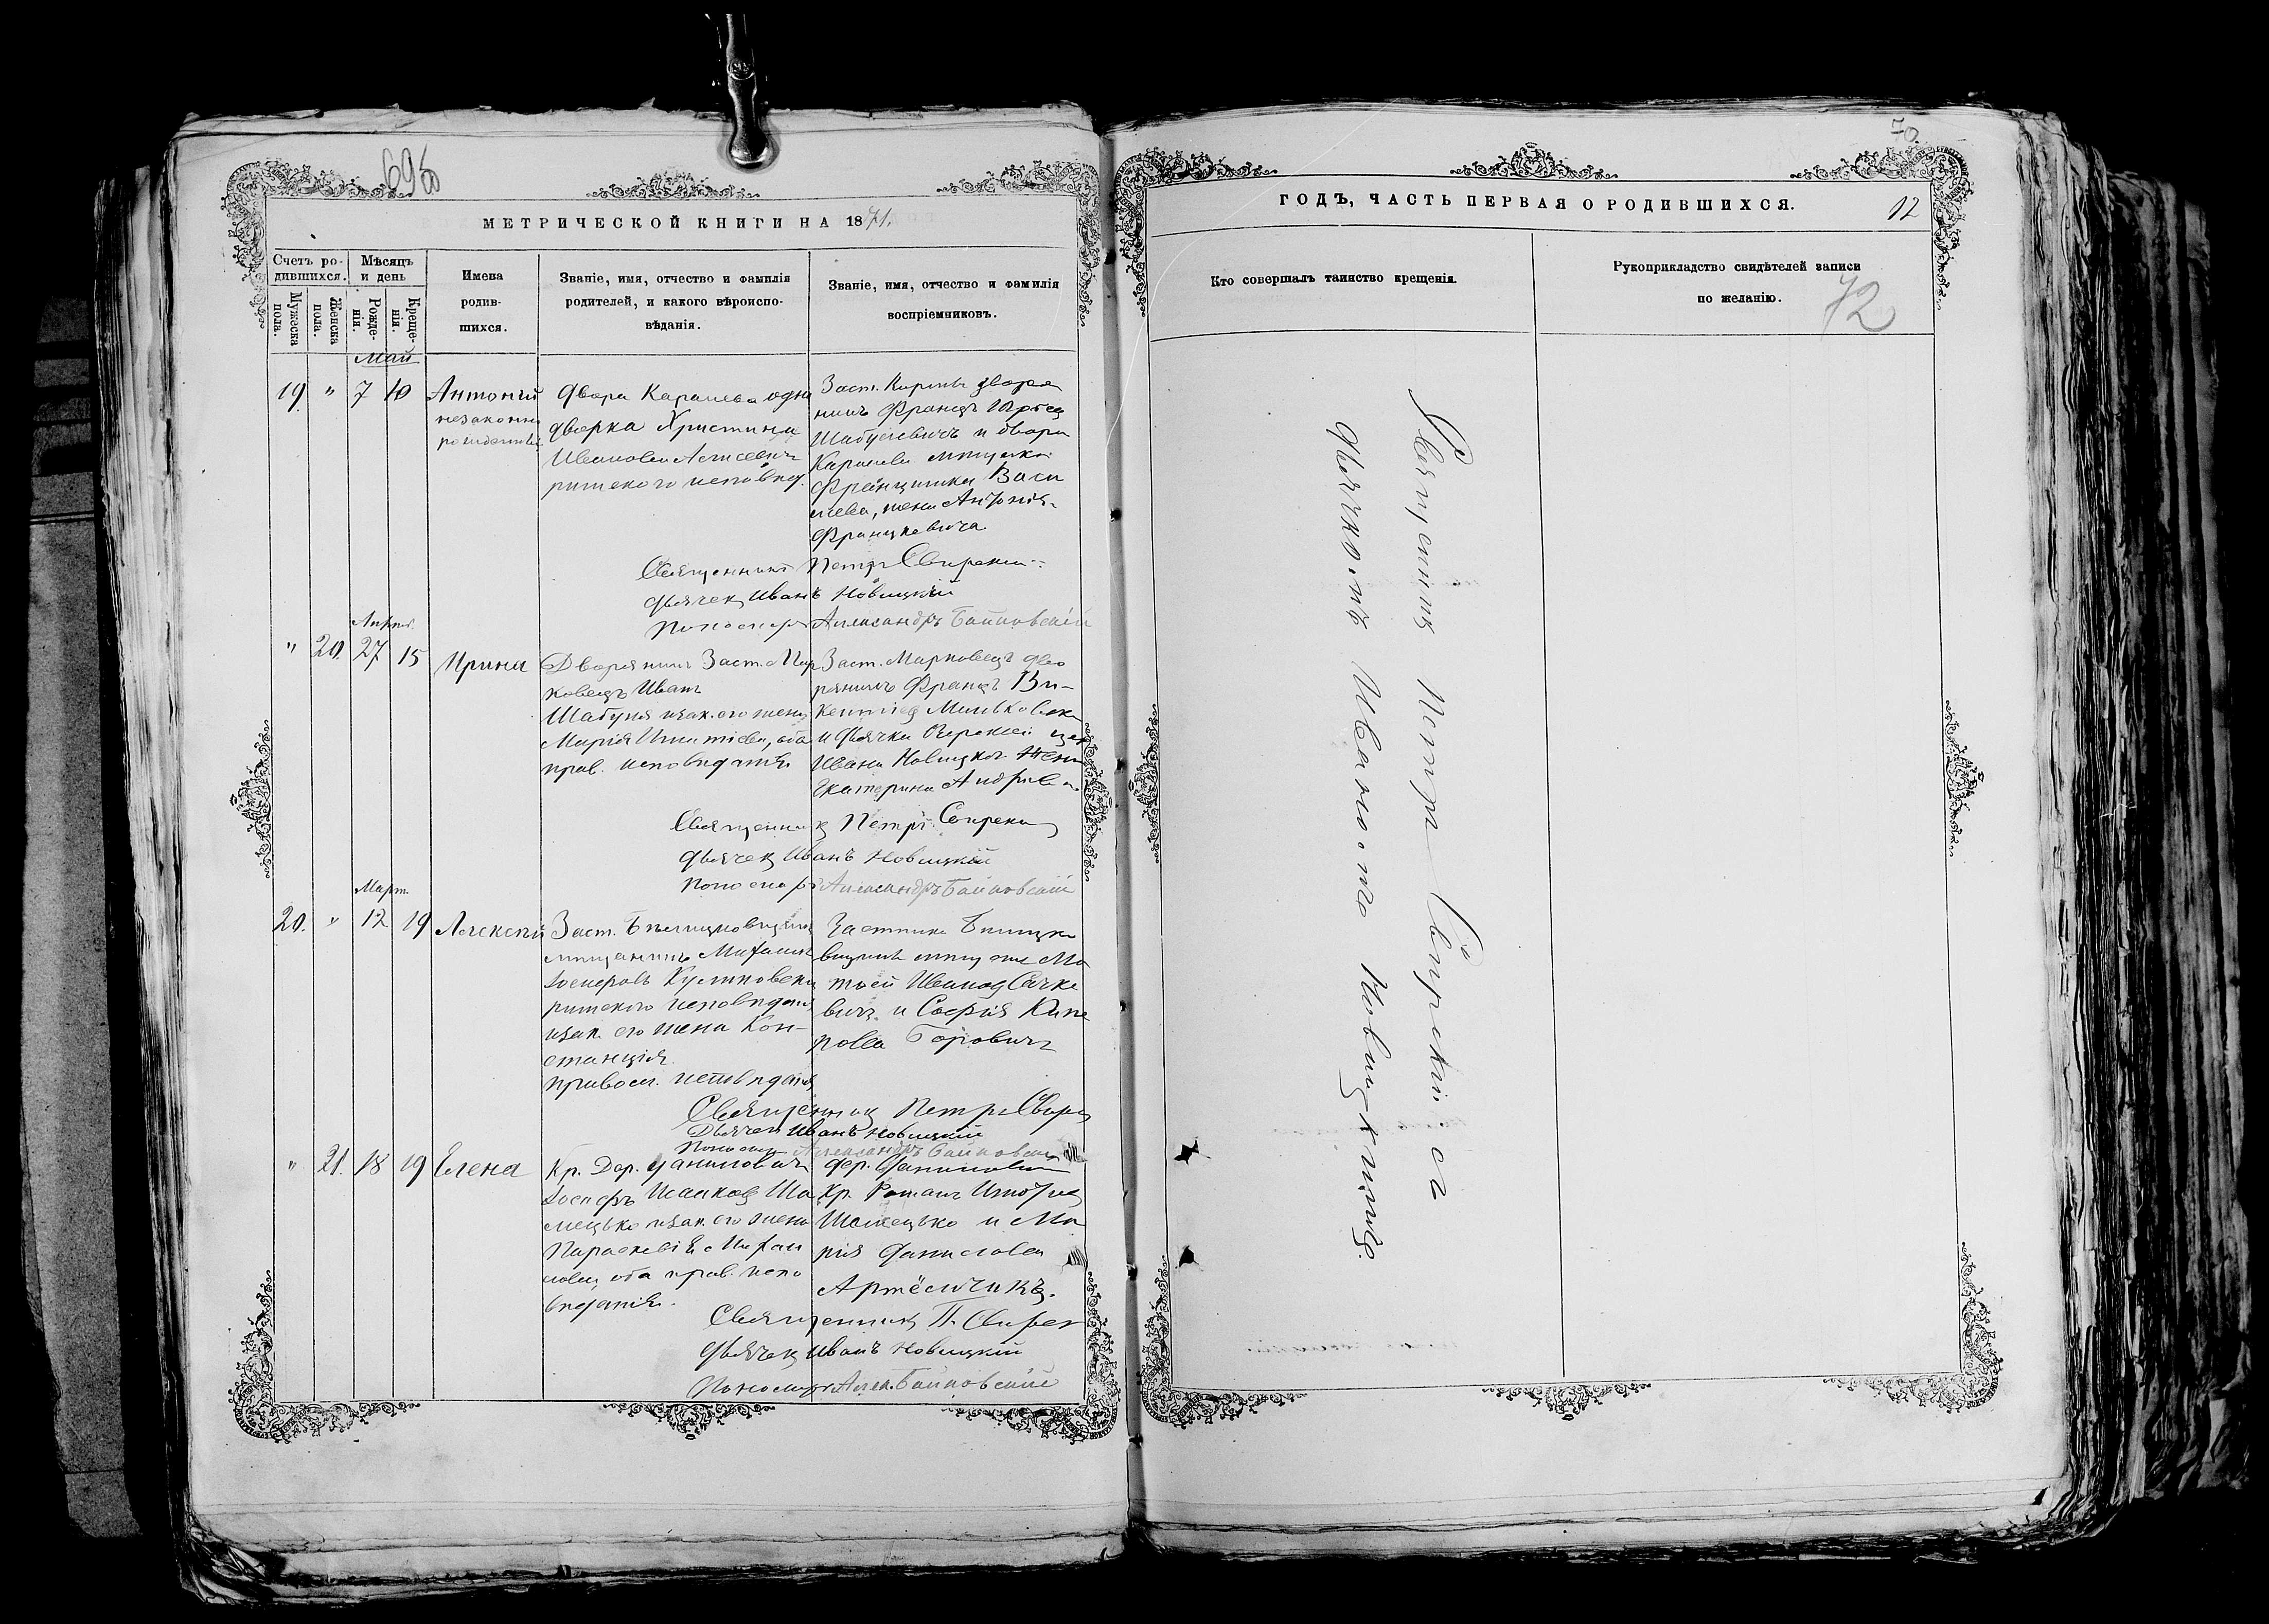 696
МЕТРИЧЕСКОЙ КНИГИ НА 1871.
Счетъ ро-
дившихся.
Мѣсяцъ
и день
Мужеска
пола.
Женска
пола.
Рожде-
нія.
Креще-
нія.
Имена
родив-
шихся.
Званіе, имя, отчество и фамилія
родителей, и какого вѣроиспо-
вѣданія.
Званіе, имя, отчество и фамилія
воспріемниковъ.
Май
19. " 7 10 Антоній
незаконно
рожденный
двора Карачева одно
дворка Христина
Иванова
римского исповѣд.
Заст. дворя
нинъ Францъ
Шабуневичъ и двора
Карачева мѣщанка
Францишка Васи
лева, жена Антонія
Францкевича
Священникъ Петръ Свирскій
Дьячекъ Иванъ Новицкій
Пономарь Александръ Байковскій
Апрѣл.
" 20. 27 15 Ирина
Дворянинъ Заст. Мар
ковецъ Иванъ
Шабуня изак. его жена
Марія Игнатіева, оба
прав. исповѣданія
Заст. Марковецъ дво
рянинъ Францъ Ви-
кентіев
и дьячка цер
Ивана Новицкаго жена
Екатерина Андреева.
Священникъ Петръ Свирскій
Дьячекъ Иванъ Новицкій
Пономарь Александръ Байковскій
Март.
20. " 12 19 Алексѣй
Заст.
мѣщанинъ Михаилъ
Іосифовъ
римского исповѣданія
изак. его жена Кон-
станція
православ. исповѣданія
Застѣнка
мѣщане Ма
твей Иванов Сачке
вичъ и Софія
Боровичъ
Священникъ Петръ Свирск
Дьячекъ Иванъ Новицкій
Пономарь Александръ Байковскій
" 21. 18 19 Елена
Кр. Дер. Даниловичъ
Іосифъ Исаков Ша
мецько изак. его жена
Параскевія Михаи
лова, оба прав. испо
вѣданія.
дер. Даниловичъ
Кр. Романъ
Шамецько и Ма
рія Данилова
Артёмчикъ.
Священникъ П. Свирск
Дьячекъ Иванъ Новицкій
Пономарь Алек. Байковскій
70
ГОДЪ, ЧАСТЬ ПЕРВАЯ О РОДИВШИХСЯ.
12
Кто совершалъ таинство крещенія.
Рукоприкладство свидѣтелей записи
по желанію.
72
Священникъ Петръ Свирскій съ
дьячкомъ Иваномъ Новицкимъ.